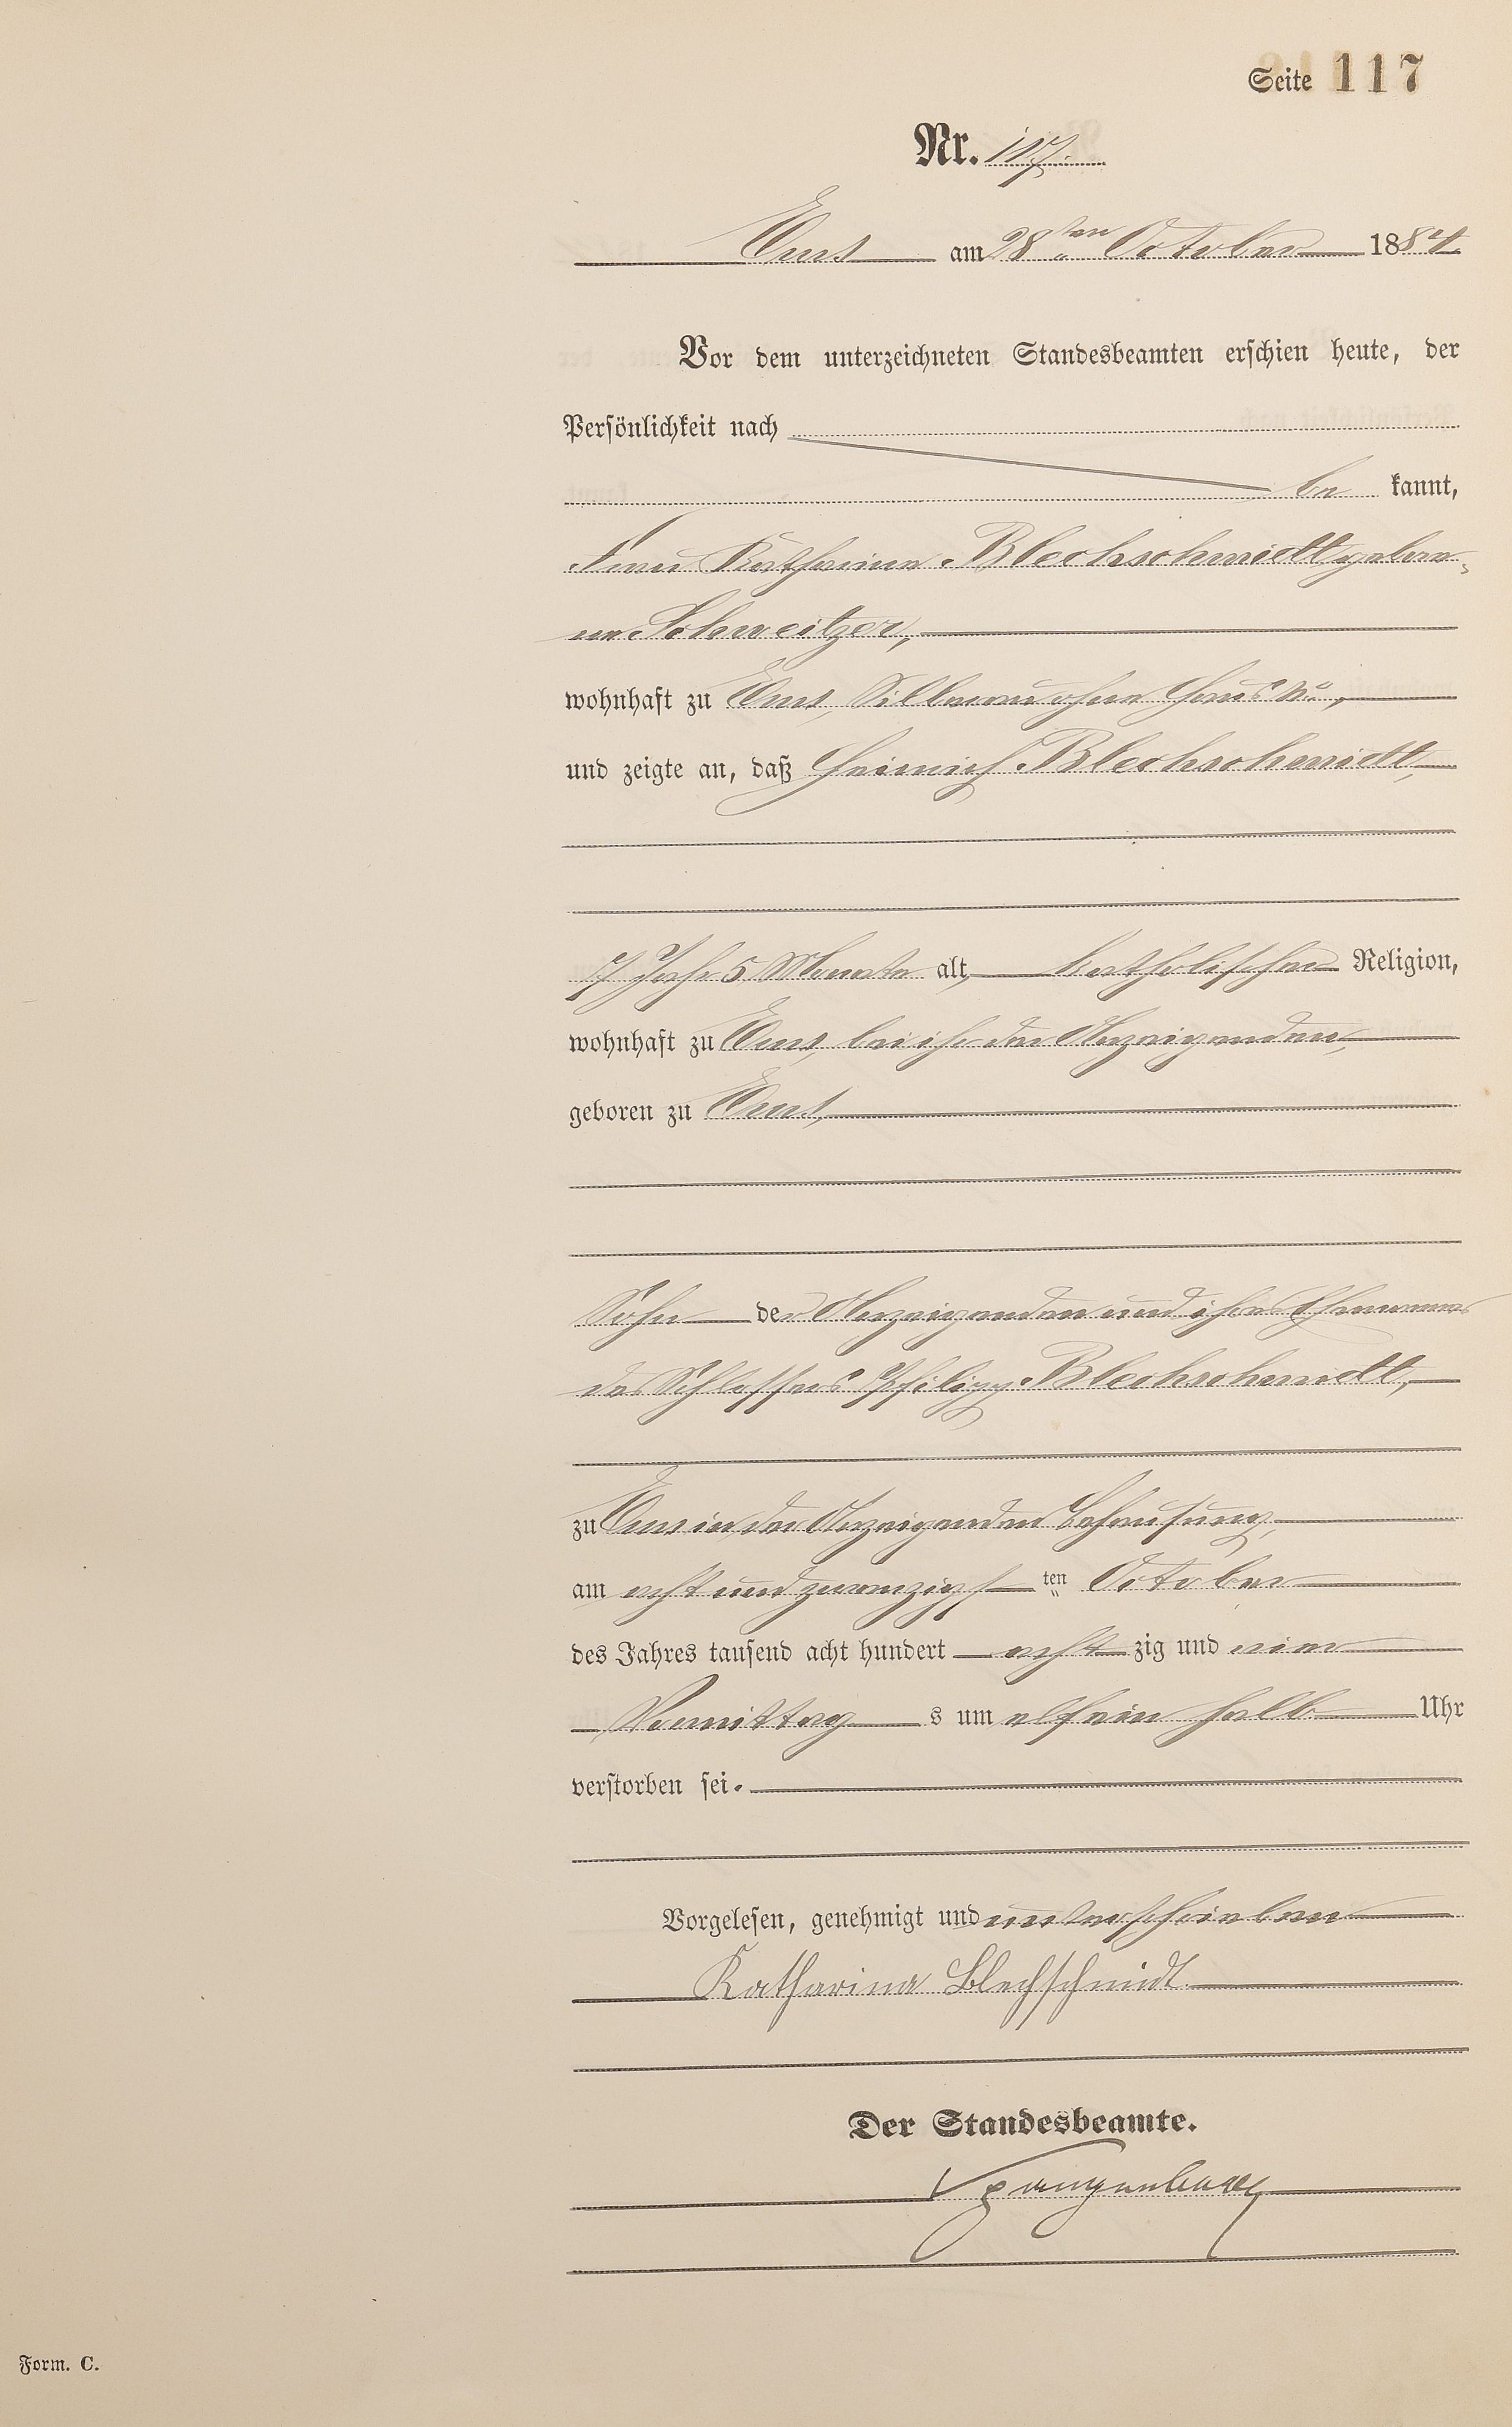 Seite 117
Nr. 117.
Ems am 28ten October 1884.
Vor dem unterzeichneten Standesbeamten erschien heute, der
Persönlichkeit nach
be kannt,
Frau Katharina Blechschmidt gebore-
ne Schweitzer,
wohnhaft zu Ems, Silberau ohne Haus No.,
und zeigte an, daß Heinrich Blechschmidt,
7 Jahr 5 Monate alt, katholischer Religion,
wohnhaft zu Ems, bei ihr der Anzeigenden,
geboren zu Ems,
Sohn der Anzeigenden und ihres Ehemannes
des Schlossers Philipp Blechschmidt,
zu Ems in der Anzeigenden Behausung,
am acht und zwanzigsten October
des Jahres tausend acht hundert achtzig und vier
Vormittags um elf ein halb Uhr
verstorben sei.
Vorgelesen, genehmigt und unterschrieben
Katharina Blechschmidt
Der Standesbeamte.
Spangenberg
Form. C.